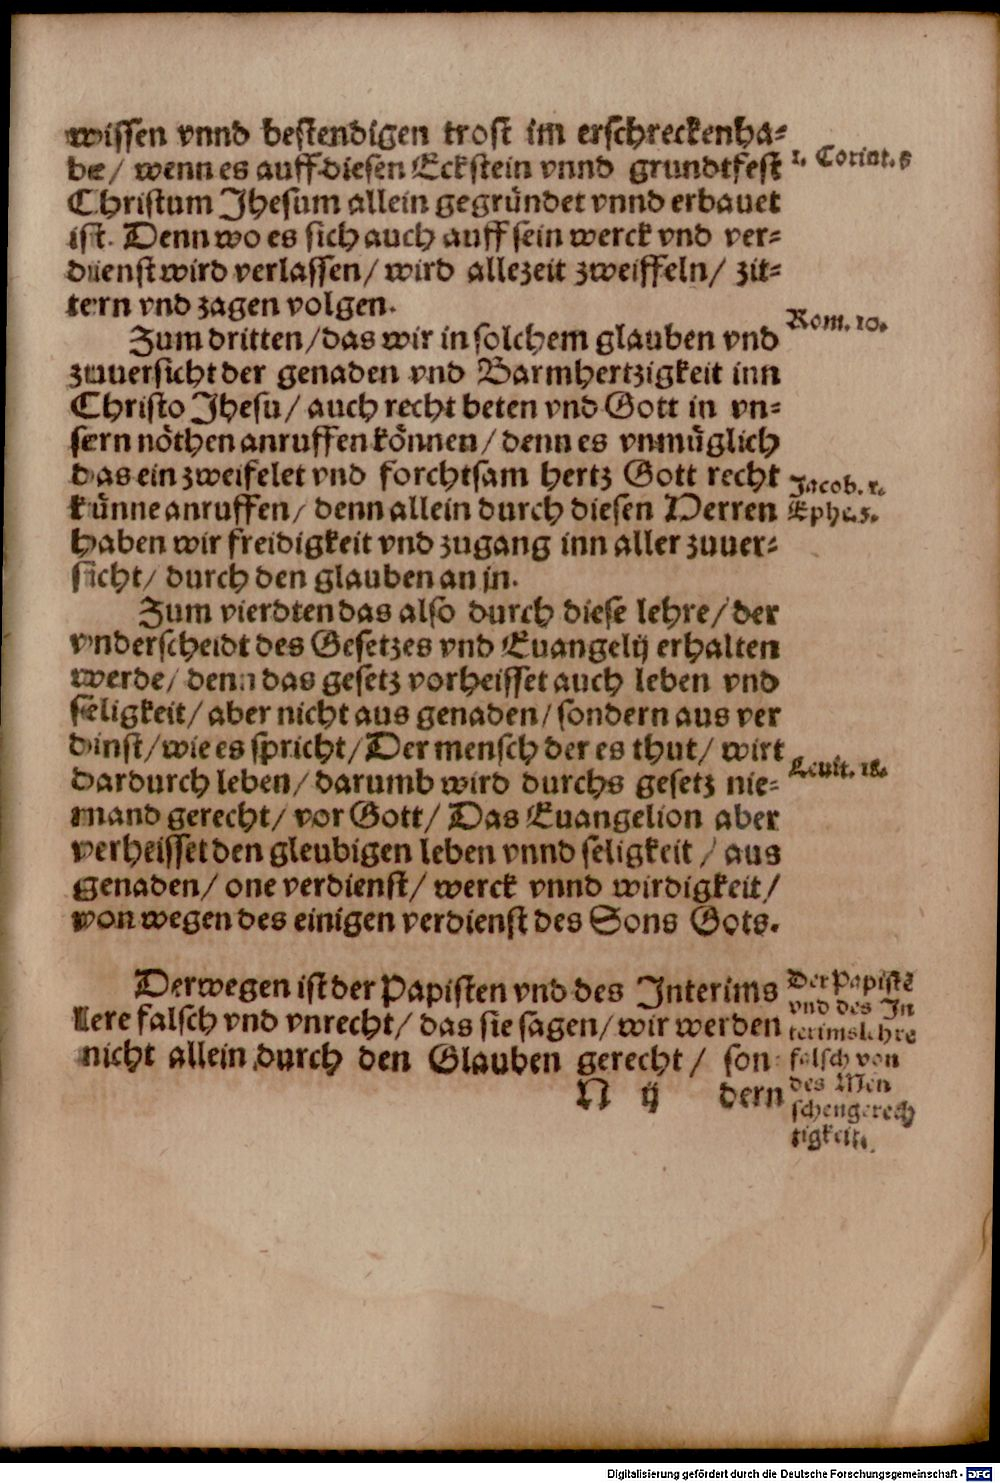 wissen vnnd bestendigen trost im erschreckenha-
be/ wenn es auff diesen Eckstein vnnd grundtfest
1. Corint. 5
Christum Jhesum allein gegründet vnnd erbauet
ist. Denn wo es sich auch auff sein werck vnd ver-
dienst wird verlassen/ wird allezeit zweiffeln/ zit-
tern vnd zagen volgen.
Rom. 10.
Zum dritten/ das wir in solchem glauben vnd
zuuersicht der genaden vnd Barmhertzigkeit inn
Christo Jhesu/ auch recht beten vnd Gott in vn-
sern nöthen anruffen können/ denn es vnmüglich
das ein zweifelet vnd forchtsam hertz Gott recht
Jacob. 1.
künne anruffen/ denn allein durch diesen Herren
Ephe. 5.
haben wir freidigkeit vnd zugang inn aller zuuer-
sicht/ durch den glauben an jn.
Zum vierdten das also durch diese lehre/ der
vnderscheidt des Gesetzes vnd Euangelij erhalten
werde/ denn das gesetz vorheisset auch leben vnd
seligkeit/ aber nicht aus genaden/ sondern aus ver
dinst/ wie es spricht/ Der mensch der es thut/ wirt
Leuit. 18.
dardurch leben/ darumb wird durchs gesetz nie-
mand gerecht/ vor Gott/ Das Euangelion aber
verheisset den gleubigen leben vnnd seligkeit/ aus
genaden/ one verdienst/ werck vnnd wirdigkeit/
von wegen des einigen verdienst des Sons Gots.
Derwegen ist der Papisten vnd des Interims
lere falsch vnd vnrecht/ das sie sagen/ wir werden
nicht allein durch den Glauben gerecht/ son
N ij dern
Der Papistē
vnd des In
terims lehre
falsch von
des Men
schengerech
tigkeit.
Digitalisierung gefördert durch die Deutsche Forschungsgemeinschaft - DFG